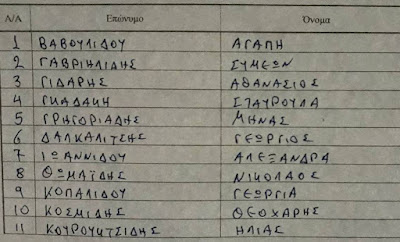 Α/Α Επώνυμο Όνομα
1 ΒΑΒΟΥΛΙΔΟΥ ΑΓΑΠΗ
2 ΓΑΒΡΙΗΛΙΔΗΣ ΣΥΜΕΩΝ
3 ΓΙΔΑΡΗΣ ΑΘΑΝΑΣΙΟΣ
4 ΓΚΑΔΑΚΗ ΣΤΑΥΡΟΥΛΑ
5 ΓΡΗΓΟΡΙΑΔΗΣ ΜΗΝΑΣ
6 ΔΑΛΚΑΛΙΤΣΗΣ ΓΕΩΡΓΙΟΣ
7 ΙΩΑΝΝΙΔΟΥ ΑΛΕΞΑΝΔΡΑ
8 ΘΩΜΑΪΔΗΣ ΝΙΚΟΛΑΟΣ
9 ΚΟΠΑΛΙΔΟΥ ΓΕΩΡΓΙΑ
10 ΚΟΣΜΙΔΗΣ ΘΕΟΧΑΡΗΣ
11 ΚΟΥΡΟΥΚΤΣΙΔΗΣ ΗΛΙΑΣ